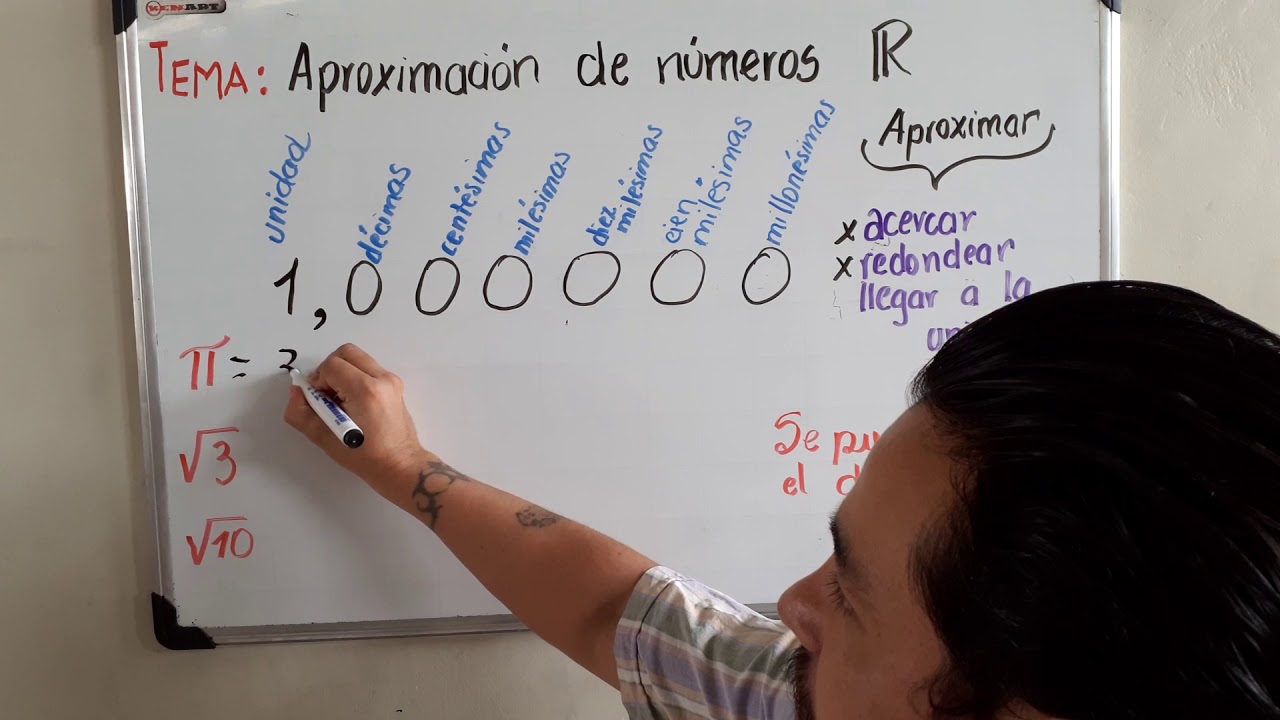 TEMA: Aproximación de números ℝ
unidad
décimas
centésimas
milésimas
diez
milésimas
cien
milésimas
millonésimas
1,000000
π = 3
√3
√10
Aproximar
x acercar
x redondear
llegar a la
Se
el